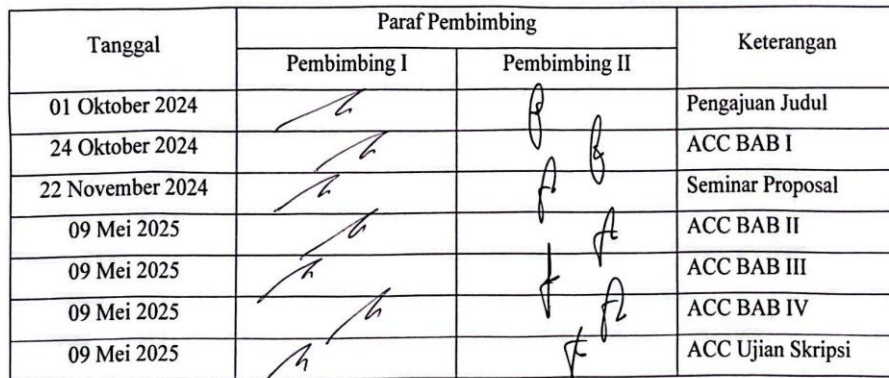 Tanggal Paraf Pembimbing Keterangan
Pembimbing I Pembimbing II
01 Oktober 2024 Pengajuan Judul
24 Oktober 2024 ACC BAB I
22 November 2024 Seminar Proposal
09 Mei 2025 ACC BAB II
09 Mei 2025 ACC BAB III
09 Mei 2025 ACC BAB IV
09 Mei 2025 ACC Ujian Skripsi